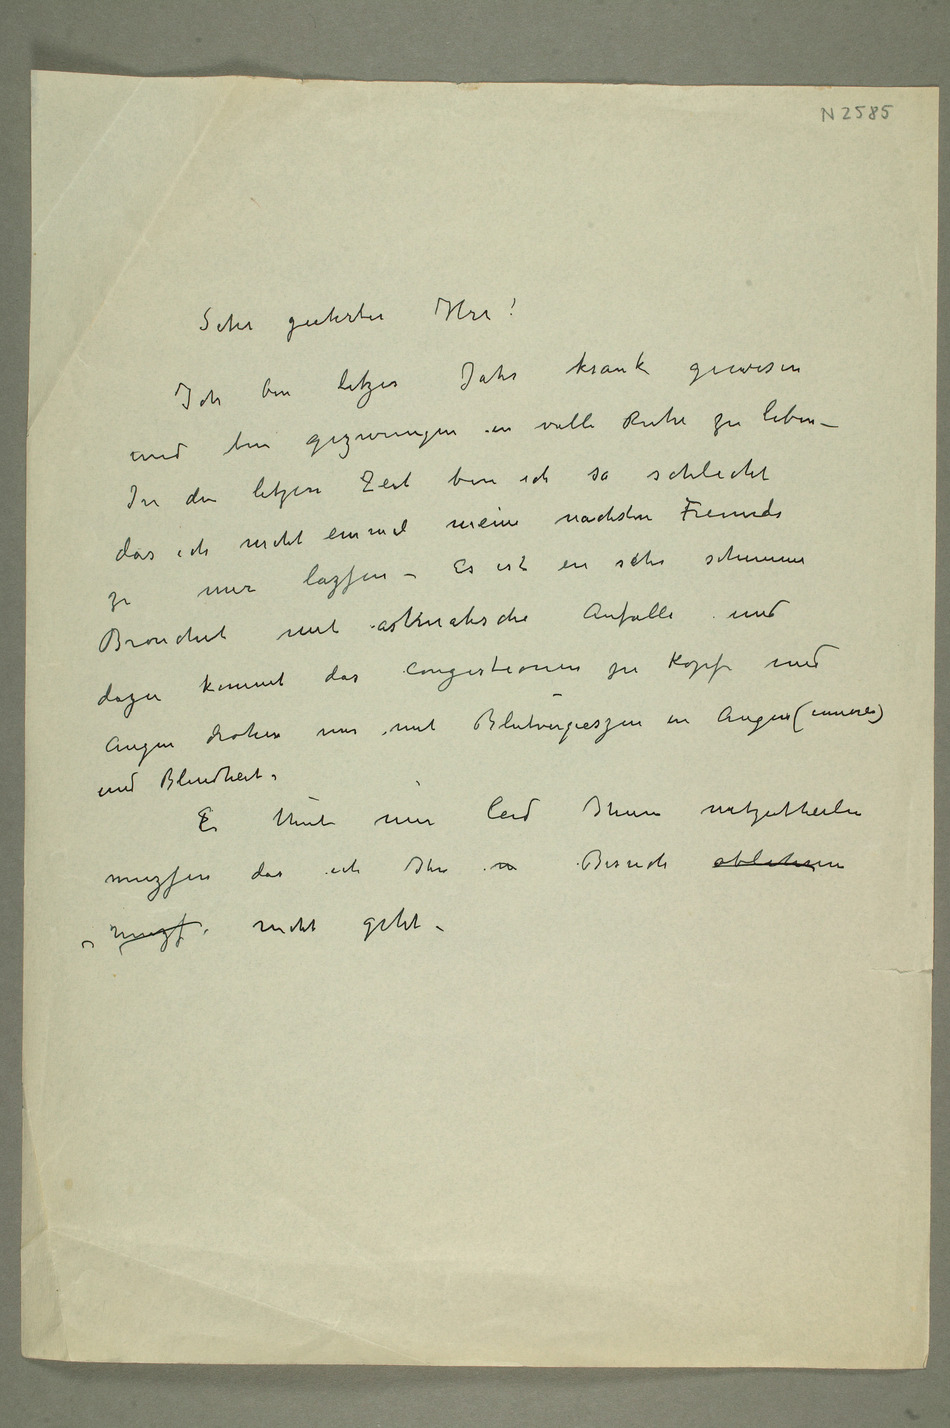 N 2585
Sehr geehrter Herr!
Ich bin letzes Jahr krank gewesen
und bin gezwungen in volle Ruhe zu leben –
In der letzen Zeit bin ich so schlecht
das ich nicht einmal meine nachsten Freunde
zu mir lazfen – Es ist ein sehr schimme
Bronchit mit astmatische Anfalle und
dazu kommt das Congestionen zu Kopf und
Augen drohen mir mit Blutvergieszen in Augen (inneres)
und Blindheit.
Es thut mir leid Ihnen mitzutheilen
muzfen das ich Ihr Besuch ablehnen
muzf. nicht geht –